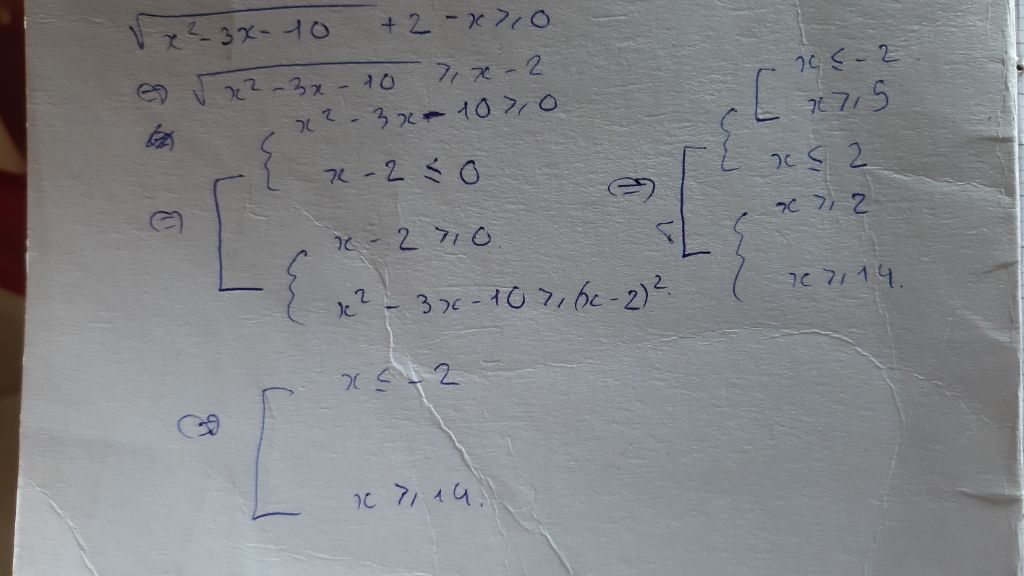 √(x² - 3x - 10) + 2 - x ≥ 0
⇔ √(x² - 3x - 10) ≥ x - 2
⇔ [ { x² - 3x - 10 ≥ 0
x - 2 ≤ 0
{ x - 2 ≥ 0
x² - 3x - 10 ≥ (x - 2)²
⇔ [ { [ x ≤ -2
x ≥ 5
x ≤ 2
{ x ≥ 2
x ≥ 14.
⇔ [ x ≤ -2
x ≥ 14.